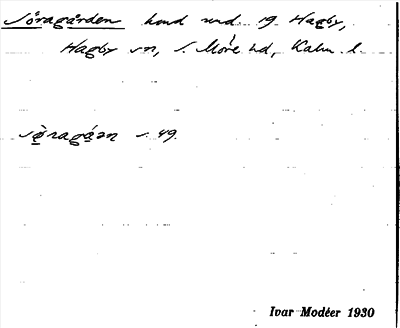 Söragården hmd und. 19 Hagby,
Hagby sn, S. Möre hd, Kalm. l.
sö̀ragá̀ən s. 49.
Ivar Modéer 1930